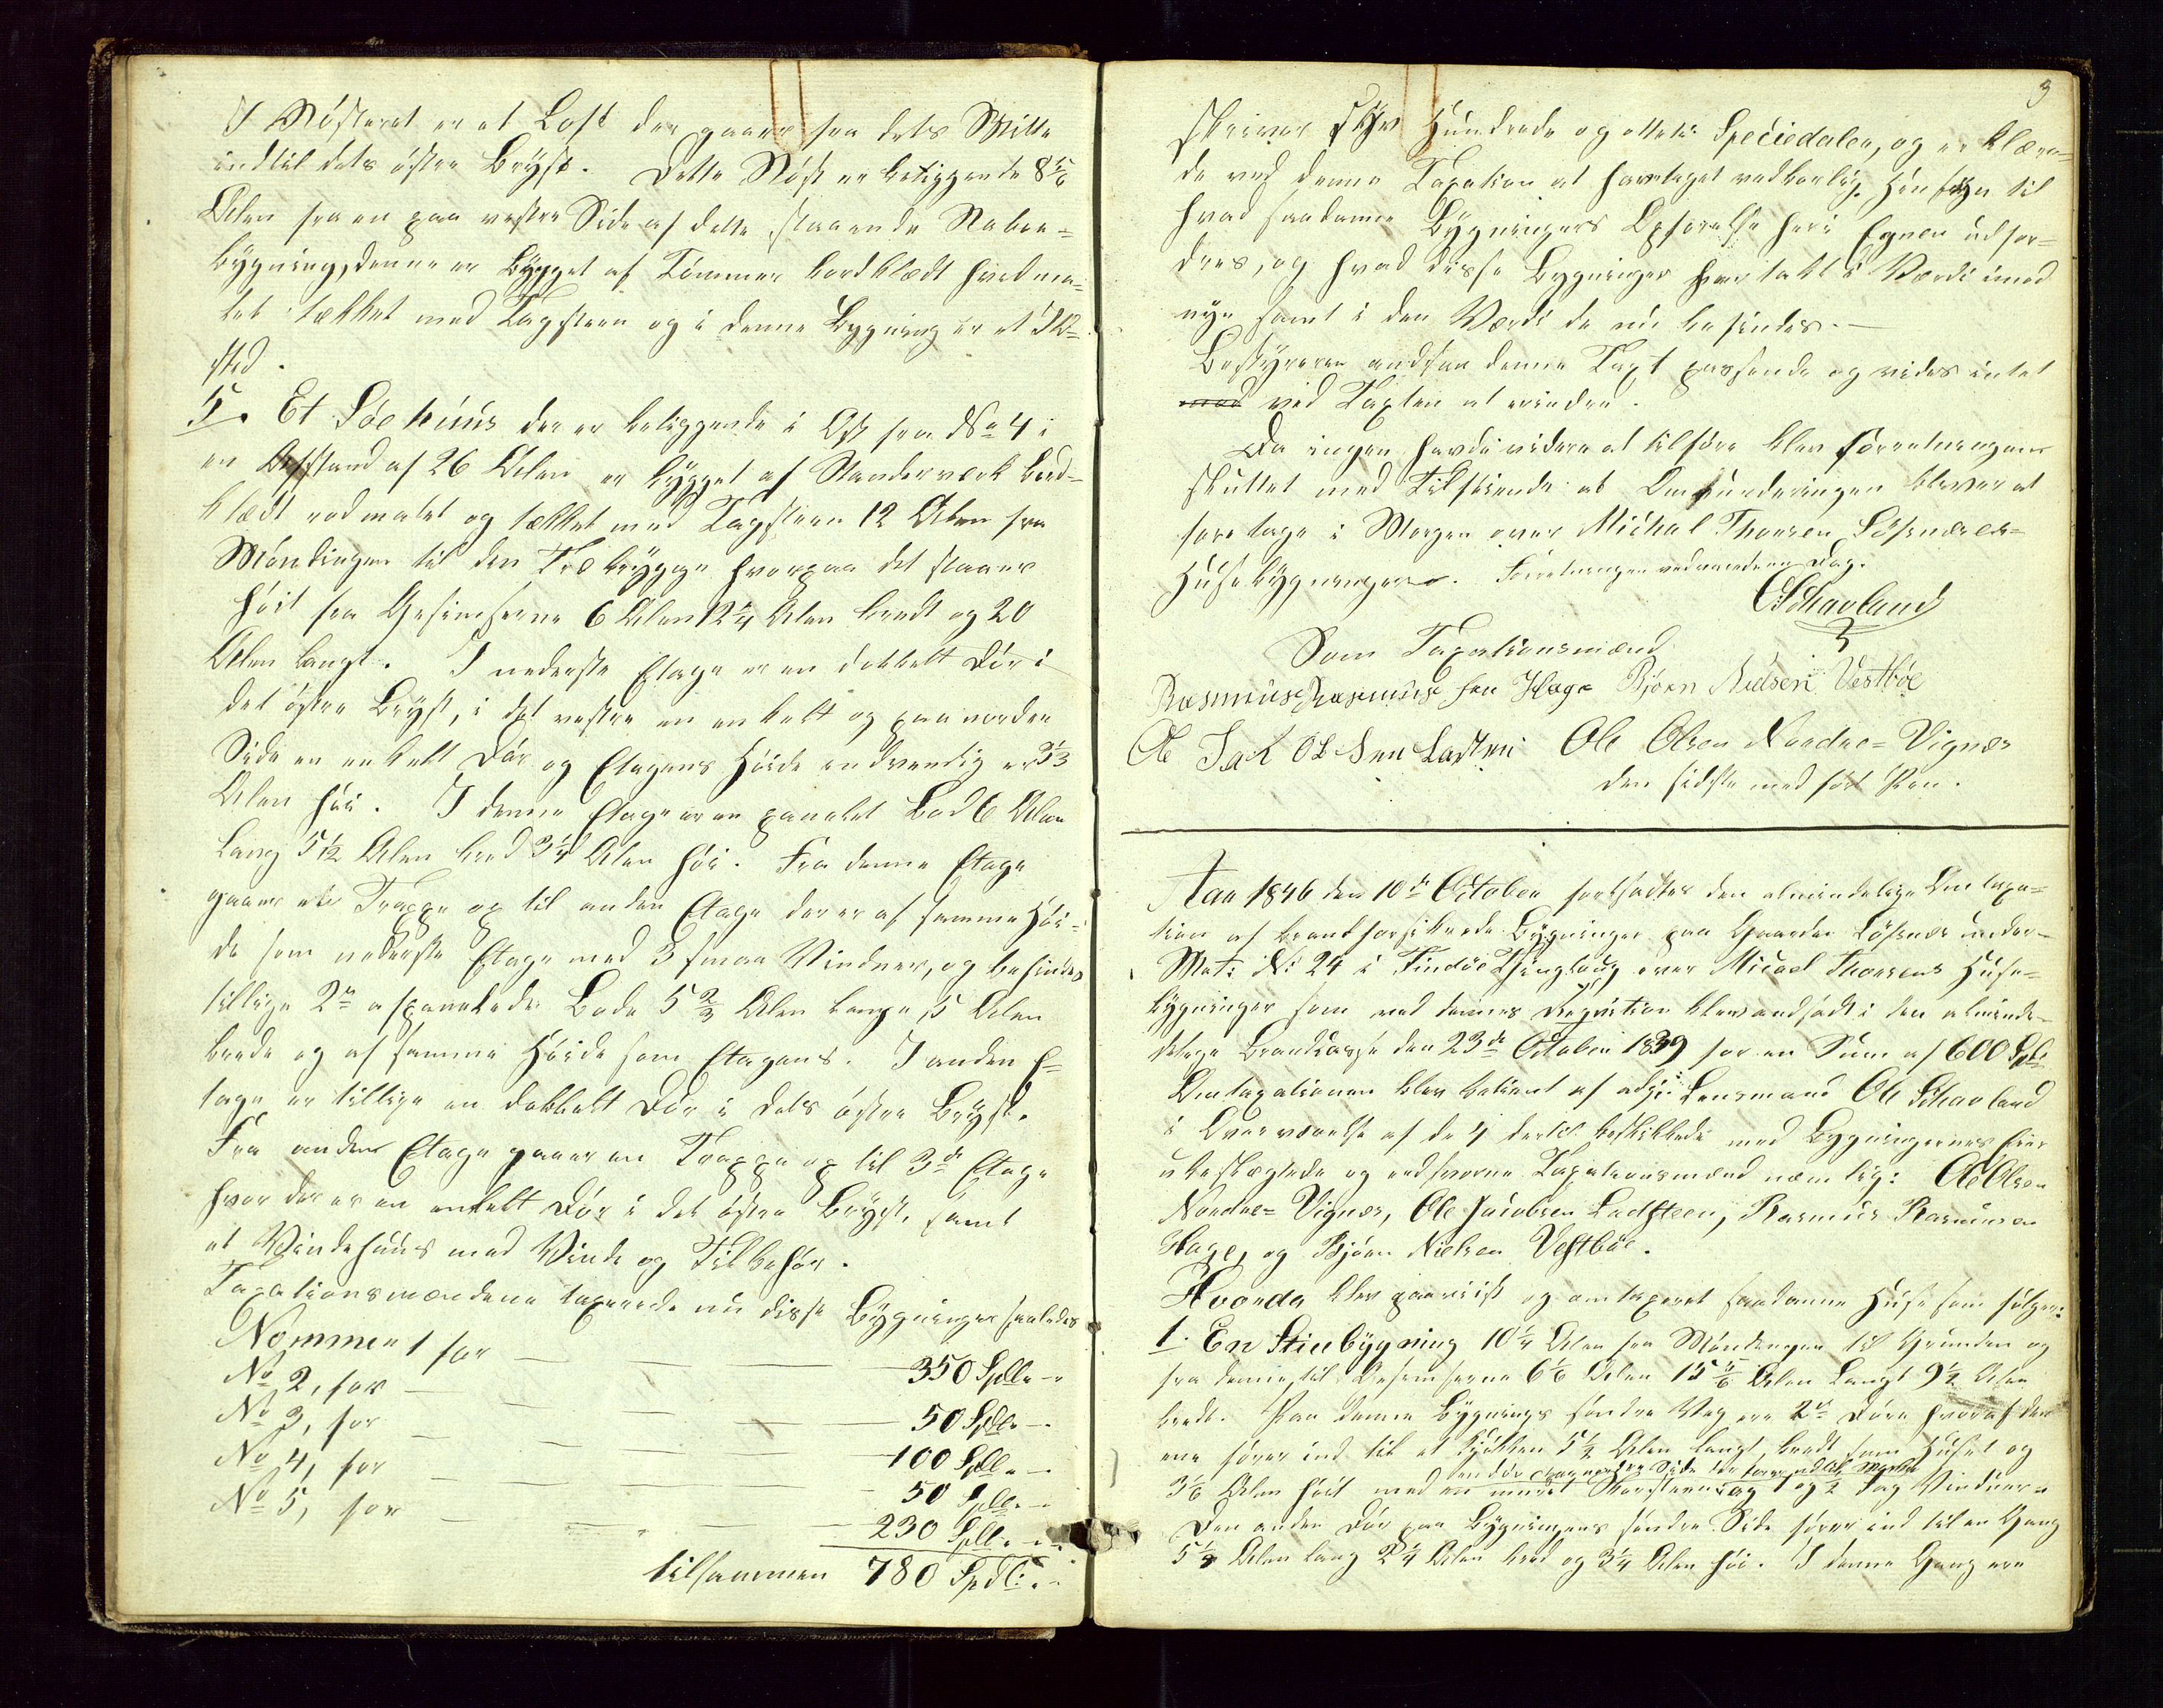 I Nøsteret er et Loft der gaaer fra dets Midte
indtil dets østre Bryst. Dette Nøst er beliggende 8 5/6
Alen fra en paa vestre Side af dette staaende Naboe=
bygning, denne er bygget af Tømmer bordklædt hvidma=
let tækket med Tagsteen og i denne Bygning er et Ild=
sted.
5. Et Søehuus der er beliggende i Øst fra No 4 i
en Afstand af 26 Alen er bygget af Standerværk bord=
klædt rødmalet og tækket med Tagsteen 12 Alen fra
Mønningen til den Træbrygge hvorpaa det staaer
høit fra Gesimserne 6 Alen 12 1/4 Alen bredt og 20
Alen langt. I nederste Etage er en dobbelt Dør i
det østre Bryst, i det vestre en enkelt og paa nordre
Side en enkelt Dør og Etagens Høide indvendig er 3 1/3
Alen høi. I denne Etage er en panelet Bod 6 Alen
lang 5 1/2 Alen bred 3 1/4 Alen høi. Fra denne Etage
gaaer en Trappe op til anden Etage der er af samme Høi=
de som nederste Etage med 3 smaa Vinduer, og befindes
tillige 2de panelede Bode 5 2/3 Alen lange, 5 Alen
brede og af samme Høide som Etagens. I anden E=
tage er tillige en dobbelt Dør i dets østre Bryst.
Fra anden Etage gaaer en Trappe op til 3de Etage
hvor der er en enkelt Dør i det østre Bryst, samt
et Vindehuus med Vinde og Tilbehør.
Taxationsmændene taxerede nu disse Bygninger saaledes
Nommer 1 for — 350 Spdlr —
No 2, for — 50 Spdlr —
No 3, for — 100 Spdlr —
No 4, for — 50 Spdlr —
No 5, for — 230 Spdlr —
tilsammen 780 Spdlr —
3
skriver syv Hundrede og otteti Speciedaler, og erklære=
de ved denne Taxation at have taget vedbørlig Hensyn til
hvad saadanne Bygningers Opførelse her i Egnen udfor=
dres, og hvad disse Bygninger har tabt i Værdi imod
nye samt i den Værdi de nu befindes.—
Bestyreren andsaa denne Taxt passende og vides intet
ved Taxten at erindre.
Da ingen havde videre at tilføre blev Forretningen
sluttet med Tilkiende at Omvurderingen bliver at
foretage i Morgen over Michal Thorsen Løsnæses
Huusebygninger. Forretningen vedvarede en Dag.
OSchavland
Som Taxationsmænd
Rasmus Rasmussen Hage Bjørn Nielsen Vestbøe
Ole Jak Obsen Ladsten Ole Olsen Nordre=Vignæs
den sidste med ført Pen.
Aar 1846 den 10de October fortsattes den almindelige Omtaxa=
tion af brandforsikrede Bygninger paa Gaarden Løsnæs under
Mat: No 24 i Findøe Thinglaug over Micael Thorsens Huuse=
bygninger som ved dennes Reqvition blev andsadt i den alminde=
delige Brandcasse den 23de October 1839 for en Sum af 600 Spd:
Omtaxationen blev betient af Lensmand Ole Schavland
i Overværelse af de 4 dertil beskikkede med Bygningernes Eier
ubeslægtede og eedsvorne Taxationsmænd nemlig: Ole Olsen
Nordre=Vignes, Ole Jacobsen Ladsteen, Rasmus Rasmussen
Hage, og Bjørn Nielsen Vestbøe.
Hvorda blev paaviist og omtaxeret saadanne Huse som følger:
1. En Stuebygning 10 1/4 Alen fra Mønningen til Grunden og
fra denne til Gesimserne 6 1/6 Alen 15 5/6 Alen Langt 9 1/2 Alen
bredt. Paa denne Bygnings søndre Væg ere 2de Døre hvoraf den
ene fører ind til et Kjøkken 5 1/2 Alen langt, bredt som Huset og
en dør paa nordre Side der fører ud til Marken
3 1/6 Alen høit med en muret Skorsteen og 1 og 1/2 Fag Vinduer.
Den anden Dør paa Bygningens søndre Side fører ind til en Gang
5 1/3 Alen lang 2 1/4 Alen bred og 3 1/4 Alen høi. I denne Gang ere